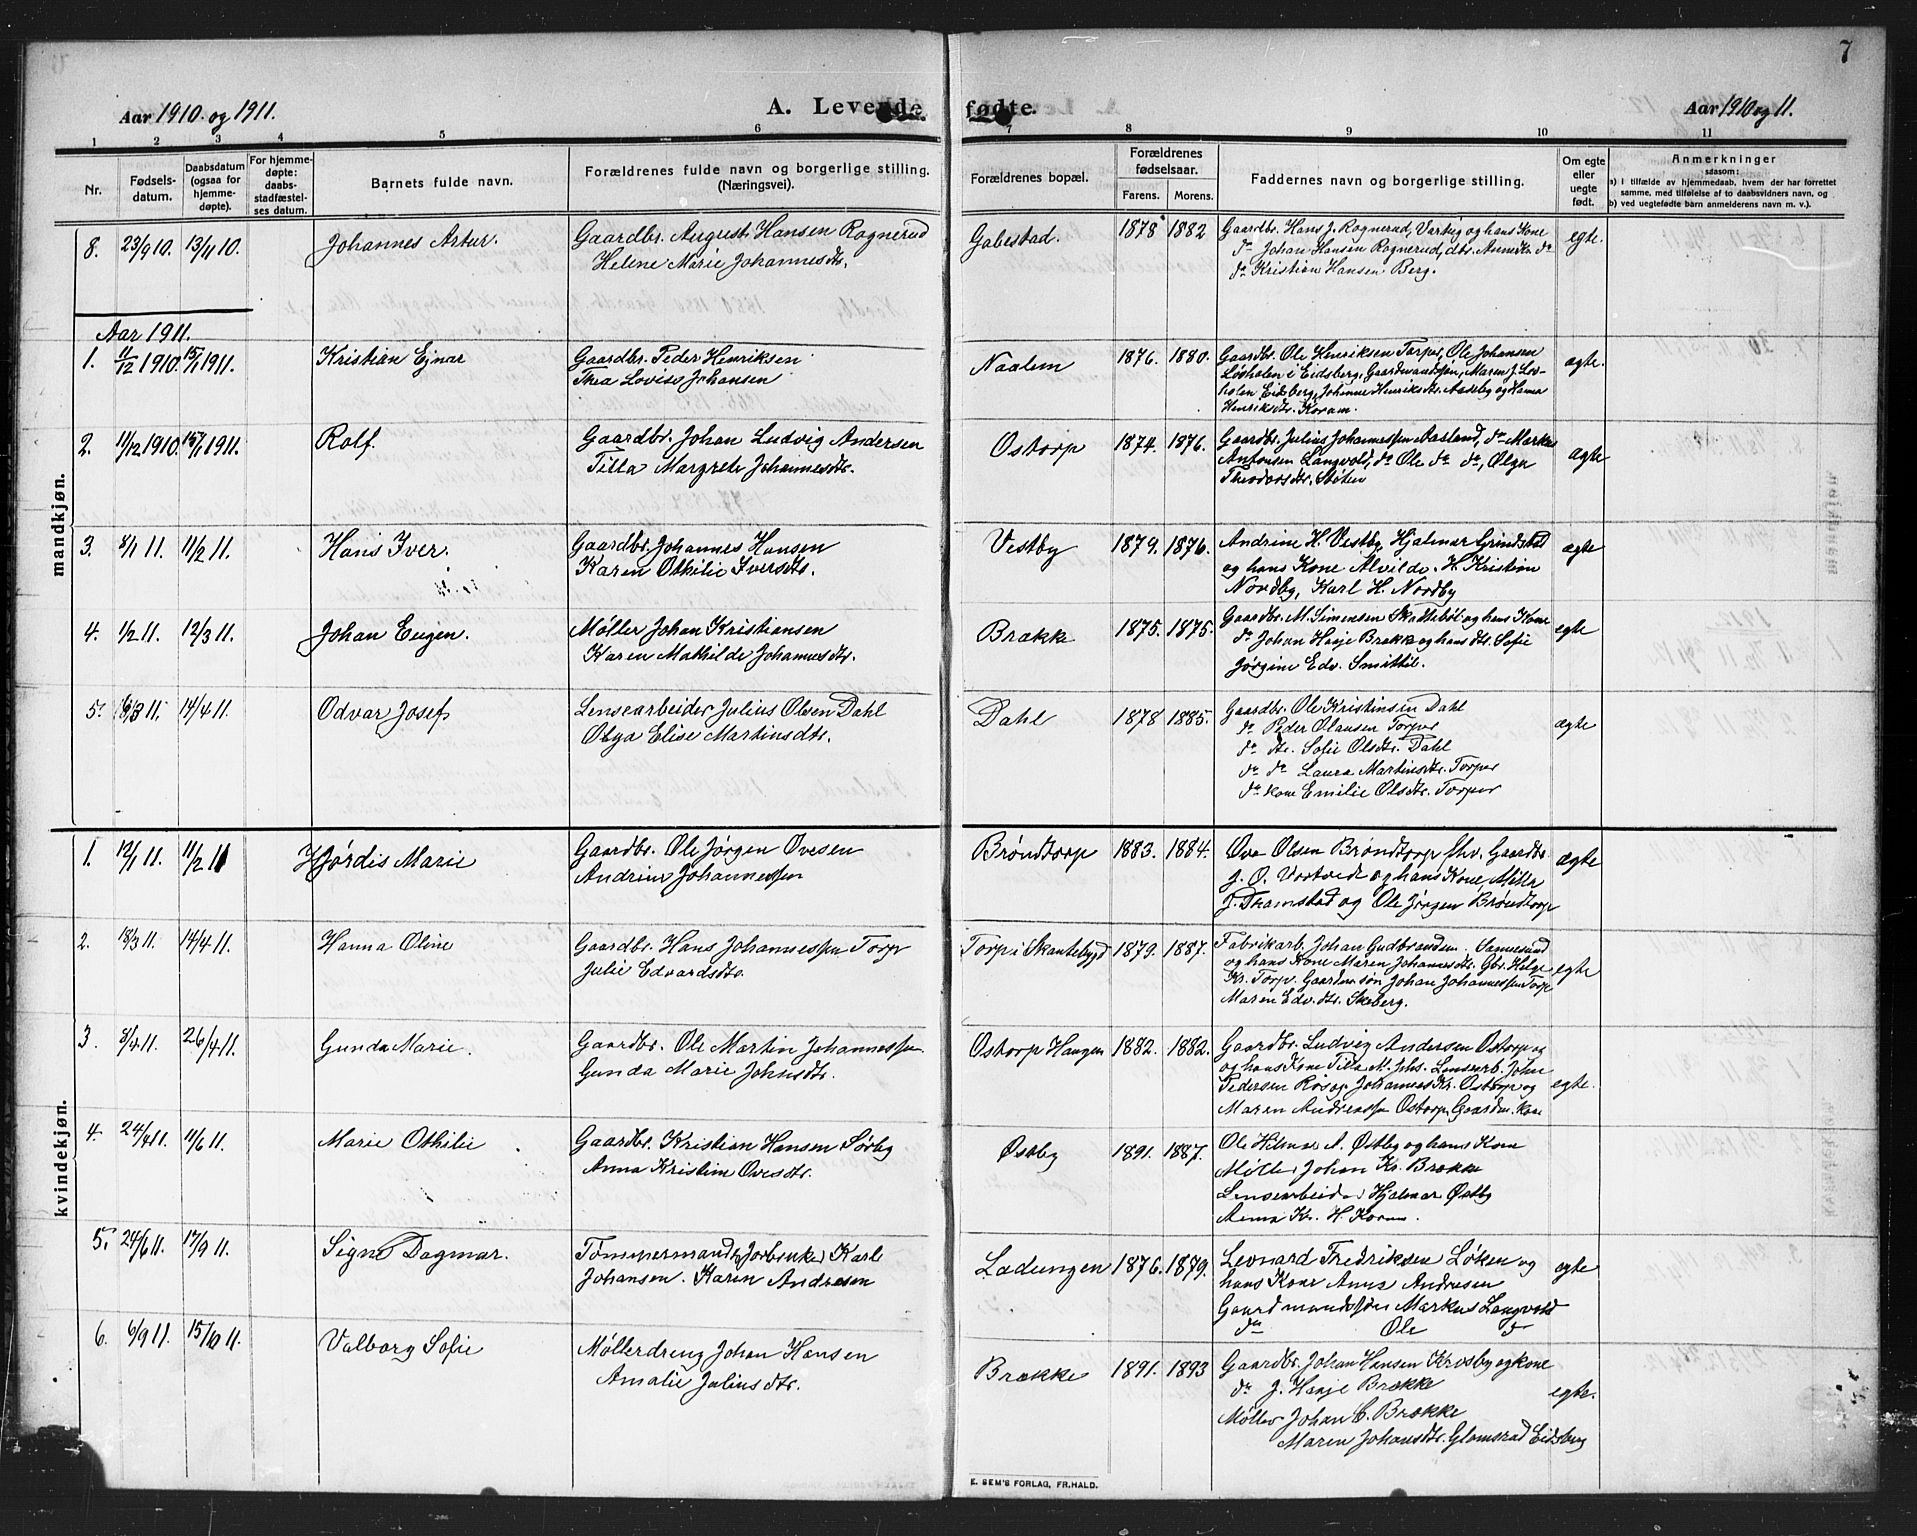 7
Aar 1910 og 1911.
A. Levende fødte.
Aar 1910 og 11.
1 2 3 4 5 6 7 8 9 10 11
Nr.
Fødsels-
datum.
Daabsdatum
(ogsaa for
hjemme-
døpte).
For hjemme-
døpte:
daabs-
stadfæstel-
ses datum.
Barnets fulde navn.
Forældrenes fulde navn og borgerlige stilling.
(Næringsvei).
Forældrenes bopæl.
Forældrenes
fødselsaar.
Farens. Morens.
Faddernes navn og borgerlige stilling.
Om egte
eller
uegte
født.
Anmerkninger
saasom:
a) i tilfælde av hjemmedaab, hvem der har forrettet
samme, med tilføielse af to daabsvidners navn, og
b) ved uegtefødte barn anmelderens navn m. v.).
mandkjøn.
8. 23/9 10. 13/11 10. Johannes Artur.
Gaardbr. August Hansen Rognerud
Helene Marie Johannesdtr.
Gabestad. 1878 1882
Gaardbr. Hans J. Rognerud, Vartig og hans Kone
do Johan Hansen Rognerud, dbr. Anne Kr. do
do Kristian Hansen Berg.
egte.
Aar 1911.
1. 11/12 1910. 15/1 1911. Kristian Ejnar
Gaardbr. Peder Henriksen
Thea Lovise Johansen
Naalem 1876. 1880.
Gaardbr. Ole Henriksen Torper, Ole Johansen
Løvholen i Eidsberg, Gaardmandssøn, Maren J. Løv-
holen Eidsberg, Johanne Henriksdtr. Aaseby og Hanna
Henriksdtr. Koram.
ægte.
2. 11/12 1910. 15/1 1911. Rolf.
Gaardbr. Johan Ludvig Andersen
Tilla Margrete Johannesdtr.
Ostorp 1874. 1876.
Gaardbr. Julius Johannessen Aasland, do Markus
Antonsen Langvold, do Ole do do, Olga
Theodorsdtr. Støten
ægte
3. 8/1 11. 11/2 11. Hans Iver.
Gaardbr. Johannes Hansen
Karen Othilie Iversdtr.
Vestby 1879. 1876.
Andrine H. Vestby, Hjalmar Grindstad
og hans Kone Alvilde. H. Kristian
Nordby, Karl H. Nordby
ægte
4. 1/2 11. 12/3 11. Johan Eugen.
Møller Johan Kristiansen
Karen Mathilde Johannesdtr.
Brække 1875. 1875.
Gaardbr. M. Simensen Skattebøl og hans Kone
do Johan Hage Brække og hans dtr. Sofie
Jørgine Edv. Smittil.
egte
5. 16/3 11. 14/4 11. Odvar Josef
Lensearbeider Julius Olsen Dahl
Olga Elise Martinsdtr.
Dahl 1878 1885.
Gaardbr. Ole Kristinsen Dahl
do Peder Olausen Torper
do dtr. Sofie Olsdtr. Dahl
do do Laura Martinsdtr. Torper
do Kone Emilie Olsdtr. Torper
ægte
kvindekjøn.
1. 12/1 11. 11/2 11 Hjørdis Marie
Gaardbr. Ole Jørgen Ovesen
Andrine Johannessen
Brøndtorp 1883. 1884.
Ove Olsen Brøndtorp fhv. Gaardbr.
J. O. Vortvedt og hans Kone, Møller
J. Thomstad og Ole Jørgen Brøndtorp
ægte
2. 18/3 11. 14/4 11. Hanna Oline
Gaardbr. Hans Johannessen Torp
Julie Edvardsdtr.
Torp i Skantebygd 1879. 1887.
Fabrikarb. Johan Gudbrandsen. Sannesund
og hans Kone Maren Johannesdtr. Gbr. Helge
Kr. Torp. Gaardm.søn Johan Johannessen Torp
Maren Edv. dtr. Skeberg.
egte
3. 8/4 11. 26/4 11. Gunda Marie.
Gaardbr. Ole Martin Johannessen
Gunda Marie Johnsdtr.
Ostorp Haugen 1882. 1882.
Gaardbr. Ludvig Andersen Ostorp og
og hans Kone Tilla M. Jhs. Lensearb. John
Pedersen Røs og Johannes Kr. Ostorp og
Maren Andreassen Ostorp, Gaardm. Kone
egte.
4. 24/4 11. 11/6 11. Marie Othilie
Gaardbr. Kristian Hansen Sørby
Anna Kristine Ovesdtr.
Østby 1891. 1887.
Ole Hilmar A. Østby og hans Kone
Møller Johan Kr. Brække
Lensearbeider Hjalmar Østby
Anna Kr. H. Koram.
5. 24/6 11. 17/9 11. Signe Dagmar.
Tømmermand, Karl
Johansen. Karen Andresen
Ladungen 1876. 1879.
Leonard Fredriksen Løken og
hans Kone Anna Andresen
Gaardmandssøn Markus Langvold
do Ole do
egte
6. 6/9 11. 15/10 11. Valborg Sofie
Møllerdreng Johan Hansen
Amalie Juliusdtr.
Brække 1891. 1893
Gaardbr. Johan Hansen Krosby og kone
do J. Hage Brække
Møller Johan C. Brække
Maren Johansdtr. Glomsrød Eidsberg
egte.
E. SEM'S FORLAG, FR.HALD.